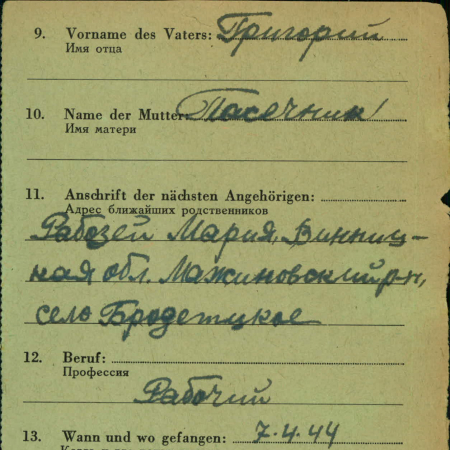 9. Vorname des Vaters: Григорий
Имя отца
10. Name der Mutter: Пасечник
Имя матери
11. Anschrift der nächsten Angehörigen:
Адрес ближайших родственников
Рабозей Мария, Винниц-
кая обл. Мажиновский р-н,
село Бродетцкое
12. Beruf:
Профессия
Рабочий
13. Wann und wo gefangen: 7.4.44